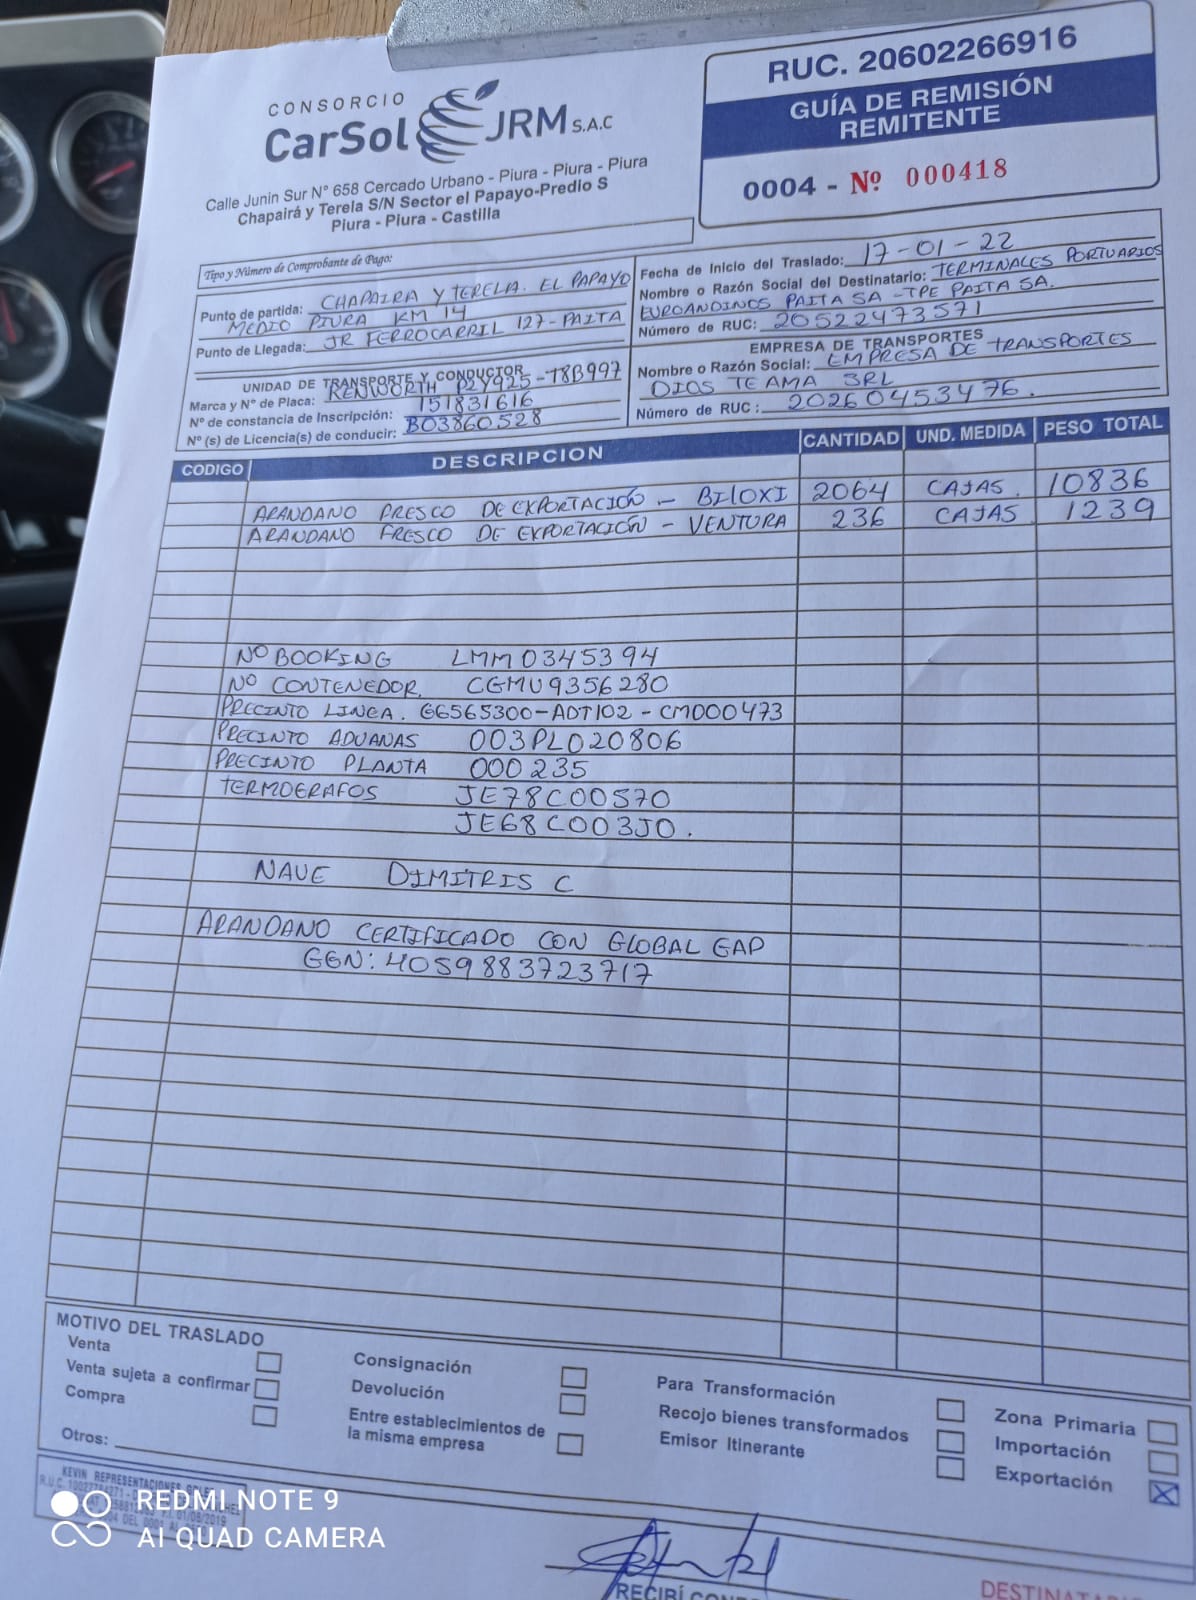 CONSORCIO
CarSol JRM S.A.C
Calle Junin Sur N° 658 Cercado Urbano - Piura - Piura - Piura
Chapairá y Terela S/N Sector el Papayo-Predio S
Piura - Piura - Castilla
RUC. 20602266916
GUÍA DE REMISIÓN
REMITENTE
0004 - Nº 000418
Tipo y Número de Comprobante de Pago:
Punto de partida: CHAPAIRA Y TERELA. EL PAPAYO
MEDIO PIURA KM 14
Punto de Llegada: JR FERROCARRIL 127-PAITA
Fecha de Inicio del Traslado: 17-01-22
Nombre o Razón Social del Destinatario: TERMINALES PORTUARIOS
EUROANDINOS PAITA SA -TPE PAITA SA.
Número de RUC: 20522473571
UNIDAD DE TRANSPORTE Y CONDUCTOR
Marca y Nº de Placa: KENWORTH P2Y925-T8B997
Nº de constancia de Inscripción: 151831616
Nº (s) de Licencia(s) de conducir: B03860528
EMPRESA DE TRANSPORTES
Nombre o Razón Social: EMPRESA DE TRANSPORTES
DIOS TE AMA SRL
Número de RUC : 20260453476.
CODIGO DESCRIPCION CANTIDAD UND. MEDIDA PESO TOTAL
ARANDANO FRESCO DE EXPORTACIÓN - BILOXI 2064 CAJAS. 10836
ARANDANO FRESCO DE EXPORTACIÓN - VENTURA 236 CAJAS 1239
Nº BOOKING LMM0345394
Nº CONTENEDOR. CGMU9356280
PRECINTO LINEA. G6565300-ADT102-CM000473
PRECINTO ADUANAS 003PL020806
PRECINTO PLANTA 000235
TERMOGRAFOS JE78C00570
JE68C003J0.
NAVE DIMITRIS C
ARANDANO CERTIFICADO CON GLOBAL GAP
GGN: 4059883723717
MOTIVO DEL TRASLADO
Venta
Venta sujeta a confirmar
Compra
Otros:
Consignación
Devolución
Entre establecimientos de
la misma empresa
Para Transformación
Recojo bienes transformados
Emisor Itinerante
Zona Primaria
Importación
Exportación X
KEVIN REPRESENTACIONES
REDMI NOTE 9
AI QUAD CAMERA
RECIBÍ